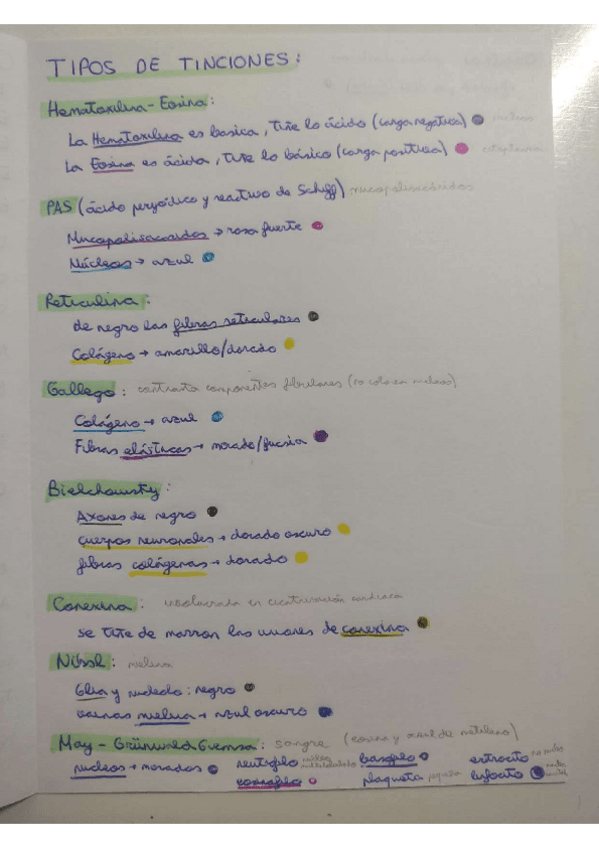 TIPOS DE TINCIONES:
Hematoxilina - Eosina:
La Hematoxilina es basica, tiñe lo ácido (carga negativa) núcleo
La Eosina es ácida, tiñe lo básico (carga positiva) citoplasma
PAS (ácido peryódico y reactivo de Schiff) mucopolisacáridos
Mucopolisacáridos → rosa fuerte
Núcleos → azul
Reticulina:
de negro las fibras reticulares
Colágeno → amarillo/dorado
Gallego: contrasta componentes fibrilares (no solo en núcleos)
Colágeno → azul
Fibras elásticas → morado/fucsia
Bielchowsty:
Axones de negro
cuerpos neuronales → dorado oscuro
fibras colágenas → dorado
Conexina: involucrada en cicatrización cardiaca
se tiñe de marron las uniones de conexina
Nissl: mielina
Glia y nucleolo: negro
vainas mielina → azul oscuro
May - Grünwald Giemsa: sangre (eosina y azul de metileno)
nucleos → morados neutrofilo núcleo multilobulado basofilo eritrocito no núcleo
eosinofilo plaqueta pequeña linfocito